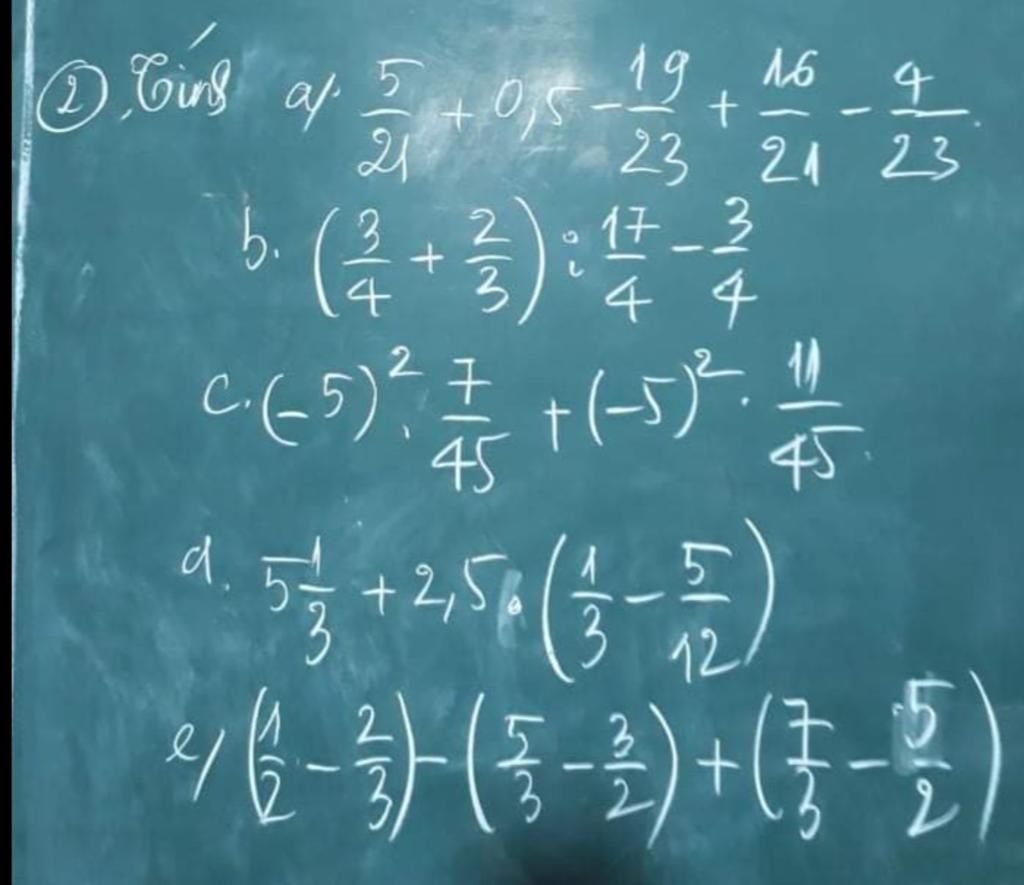 ②, Tính a/. 5/21 + 0,5 - 19/23 + 16/21 - 4/23.
b. (3/4 + 2/3) : 17/4 - 3/4
c. (-5)² . 7/45 + (-5)² . 11/45.
d. 5 1/3 + 2,5 . (1/3 - 5/12)
e/ (1/2 - 2/3) - (5/3 - 3/2) + (7/3 - 5/2)